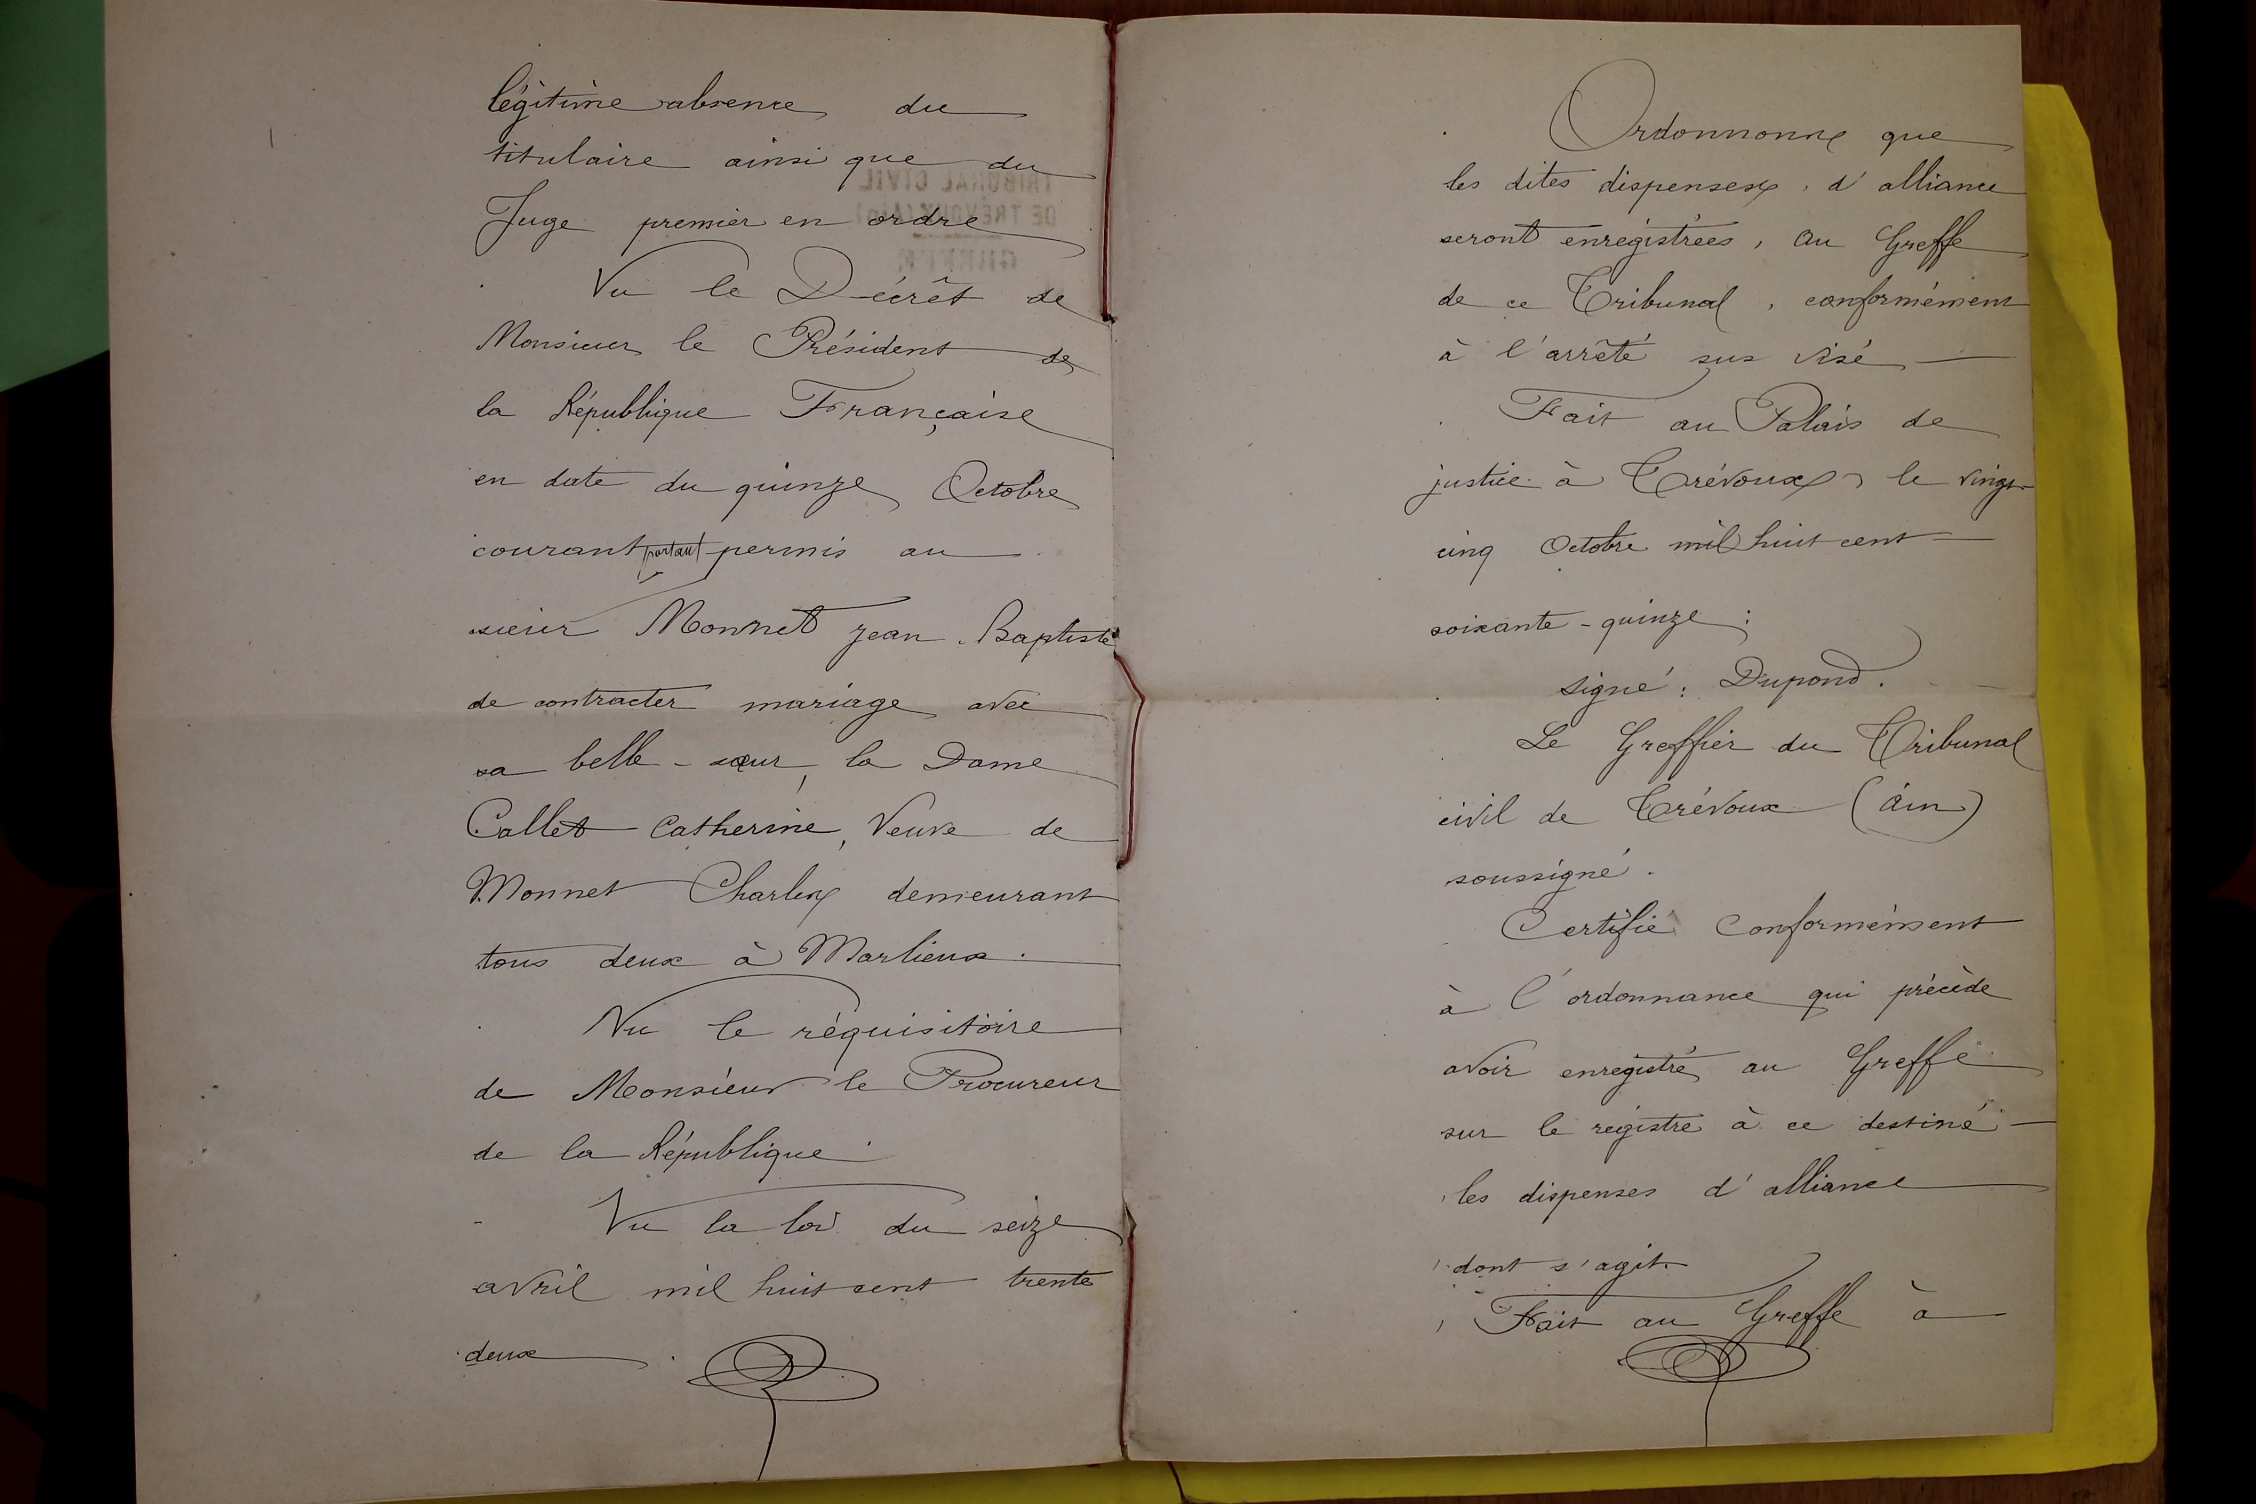 légitime absence du
titulaire ainsi que du
Juge premier en ordre
Vu le Décrêt de
Monsieur le Président de
la République Française
en date du quinze Octobre
courant portant permis au
sieur Monnet Jean-Baptiste
de contracter mariage avec
sa belle-sœur, la Dame
Collet Catherine, Veuve de
Monnet Charles demeurant
tous deux à Marlieux.
Vu le réquisitoire
de Monsieur le Procureur
de la République.
Vu la loi du seize
avril mil huit cent trente
deux.
TRIBUNAL CIVIL
DE TRÉVOUX (Ain)
GREFFE
Ordonnons que
les dites dispenses, d'alliance
seront enregistrées, au Greffe
de ce Tribunal, conformément
à l'arrêté sus visé
Fait au Palais de
justice à Trévoux, le vingt-
cinq Octobre mil huit cent
soixante-quinze:
signé: Dupond.
Le Greffier du Tribunal
civil de Trévoux (Ain)
soussigné.
Certifié Conformément
à l'ordonnance qui précède
avoir enregistré au Greffe
sur le registre à ce destiné
les dispenses d'alliance
dont s'agit.
Fait au Greffe à